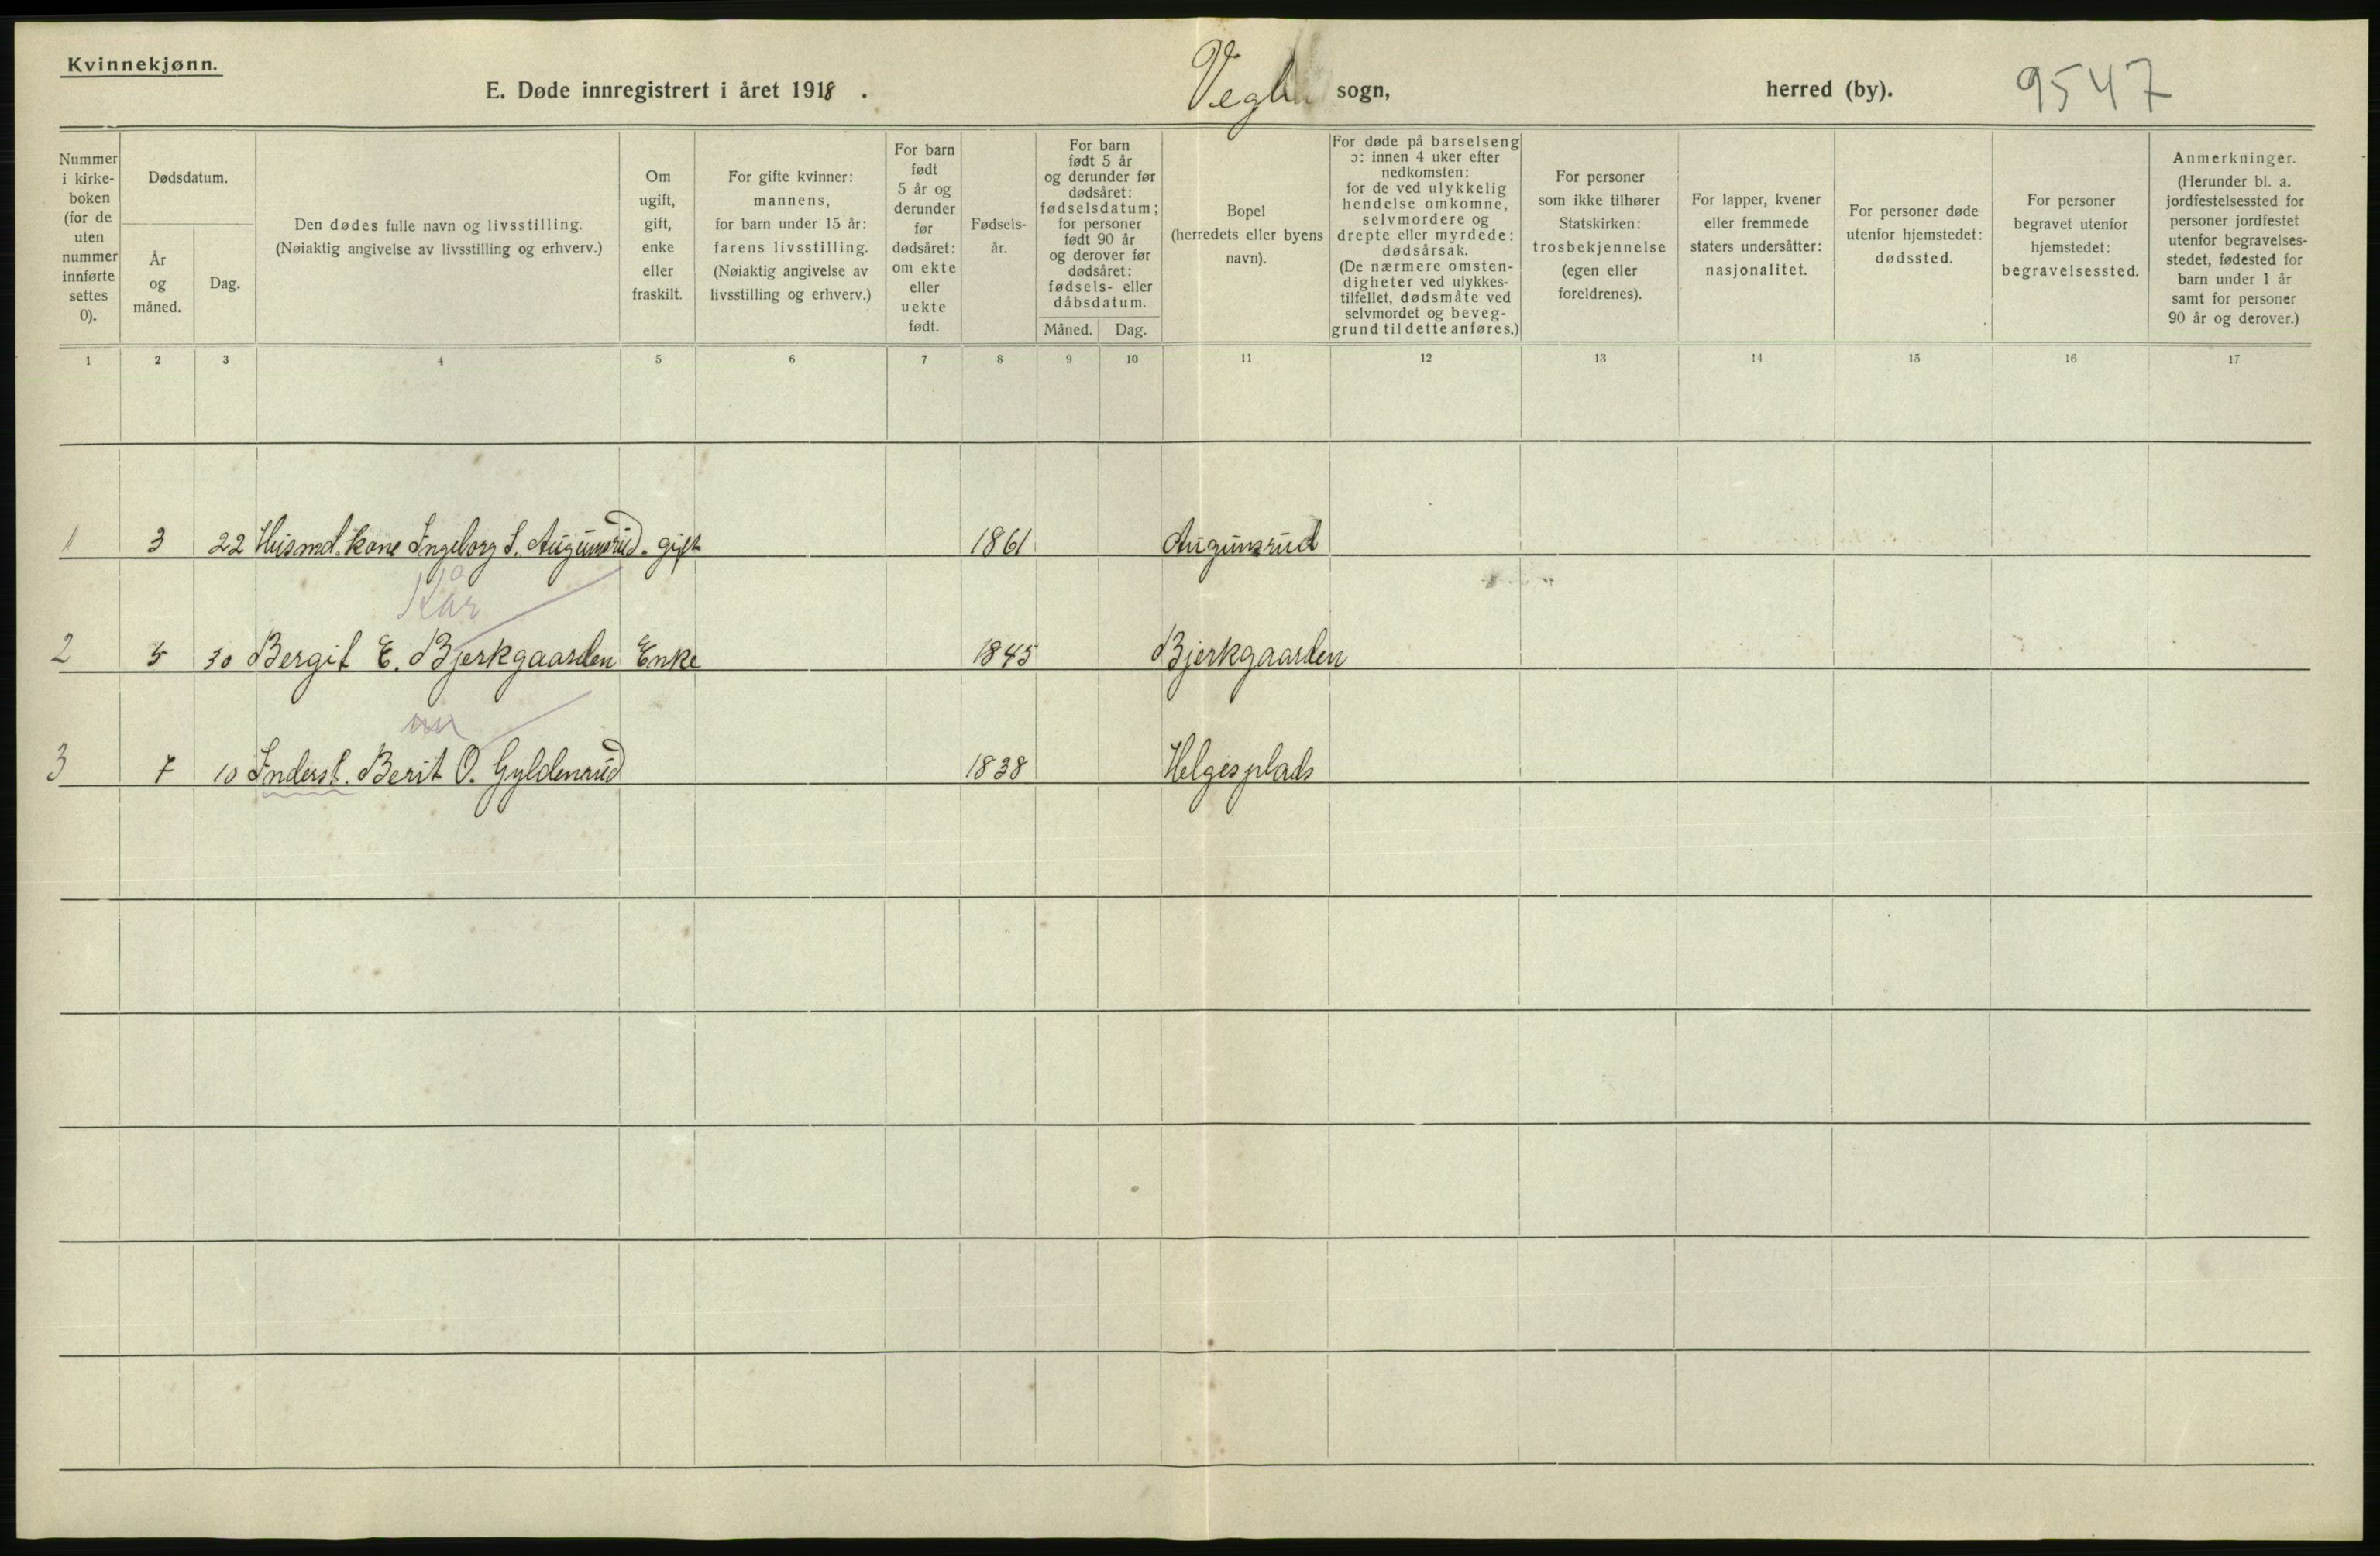 Kvinnekjønn.
E. Døde innregistrert i året 1918. sogn, herred (by). 9547
Nummer i kirke- boken (for de uten nummer innførte settes 0).
Dødsdatum.
År og måned.
Dag.
Den dødes fulle navn og livsstilling.
(Nøiaktig angivelse av livsstilling og erhverv.)
Om ugift, gift, enke eller fraskilt.
For gifte kvinner: mannens, for barn under 15 år: farens livsstilling. (Nøiaktig angivelse av livsstilling og erhverv.)
For barn født 5 år og derunder før dødsåret: om ekte eller uekte født.
Fødsels- år.
For barn født 5 år og derunder før dødsåret: fødselsdatum; for personer født 90 år og derover før dødsåret: fødsels- eller dåbsdatum.
Måned. Dag.
Bopel (herredets eller byens navn).
For døde på barselseng ɔ: innen 4 uker efter nedkomsten: for de ved ulykkelig hendelse omkomne, selvmordere og drepte eller myrdede: dødsårsak. (De nærmere omsten- digheter ved ulykkes- tilfellet, dødsmåte ved selvmordet og beveg- grund til dette anføres.)
For personer som ikke tilhører Statskirken: trosbekjennelse (egen eller foreldrenes).
For lapper, kvener eller fremmede staters undersåtter: nasjonalitet.
For personer døde utenfor hjemstedet: dødssted.
For personer begravet utenfor hjemstedet: begravelsessted.
Anmerkninger. (Herunder bl. a. jordfestelsessted for personer jordfestet utenfor begravelses- stedet, fødested for barn under 1 år samt for personer 90 år og derover.)
1 2 3 4 5 6 7 8 9 10 11 12 13 14 15 16 17
1 3 22 Husmd. kone Ingeborg S. Augunsrud. gift 1861 Augunsrud
Kår
2 5 30 Bergit E. Bjerkgaarden Enke 1845 Bjerkgaarden
3 7 10 Inderst. Berit O. Gyldenrud 1838 Helgesplads